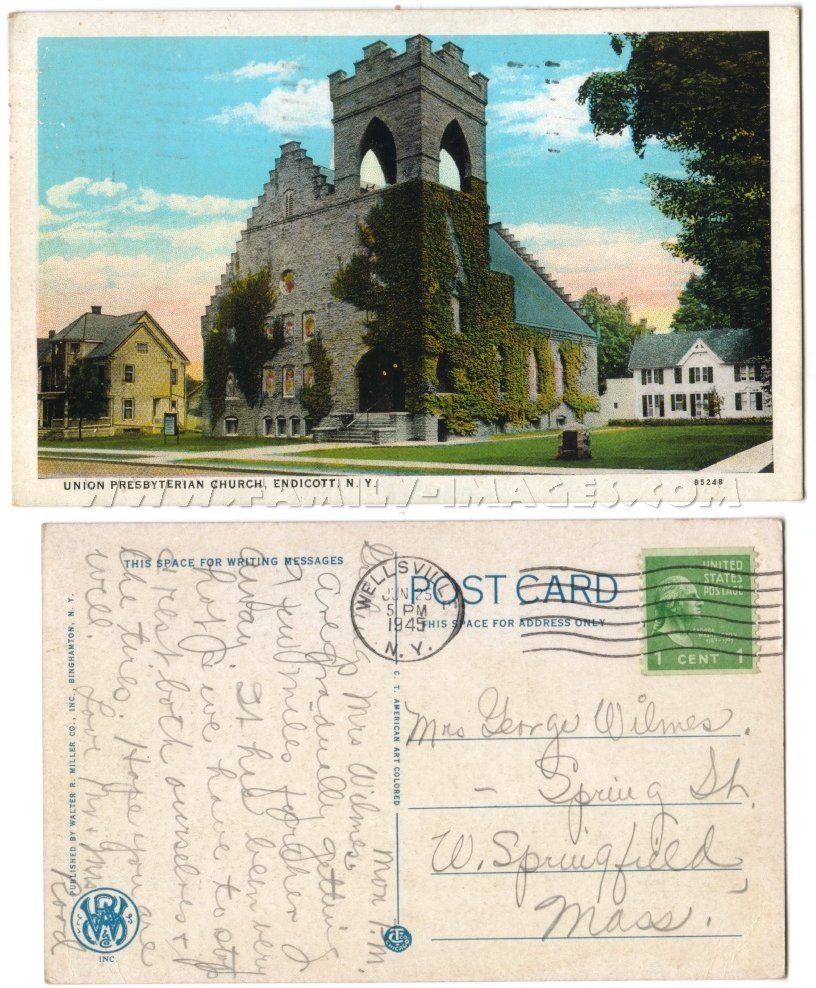 UNION PRESBYTERIAN CHURCH, ENDICOTT, N. Y.
85248
WWW.FAMILY-IMAGES.COM
THIS SPACE FOR WRITING MESSAGES
Mon P.M.
Mrs Wilmes
are gradually getting
a few miles farther &
away. It has been very
hot & we have to stop
& rest both ourselves &
the tires. Hope you are
well.
Love Mr & Mrs
Ford
PUBLISHED BY WALTER R. MILLER CO., INC., BINGHAMTON, N. Y.
INC.
C. T. AMERICAN ART COLORED
WELLSVILLE
JUN 25
5 PM
1945
N.Y.
POST CARD
THIS SPACE FOR ADDRESS ONLY
UNITED
STATES
POSTAGE
GEORGE
WASHINGTON
1 CENT 1
Mrs George Wilmes.
- Spring St.
W. Springfield
Mass.